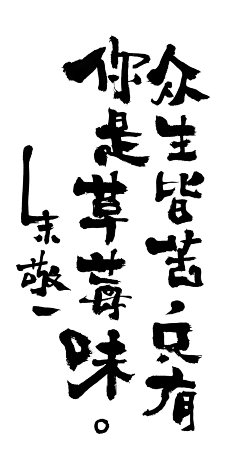 众生皆苦，只有
你是草莓味。
朱敬一